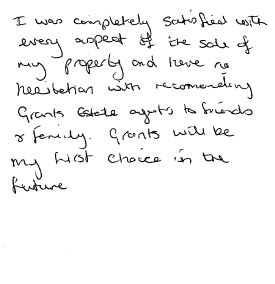 I was completely satisfied with
every aspect of the sale of
my property and have no
hesitation with recomending
Grants Estate agents to friends
& family. Grants will be
my first choice in the
future